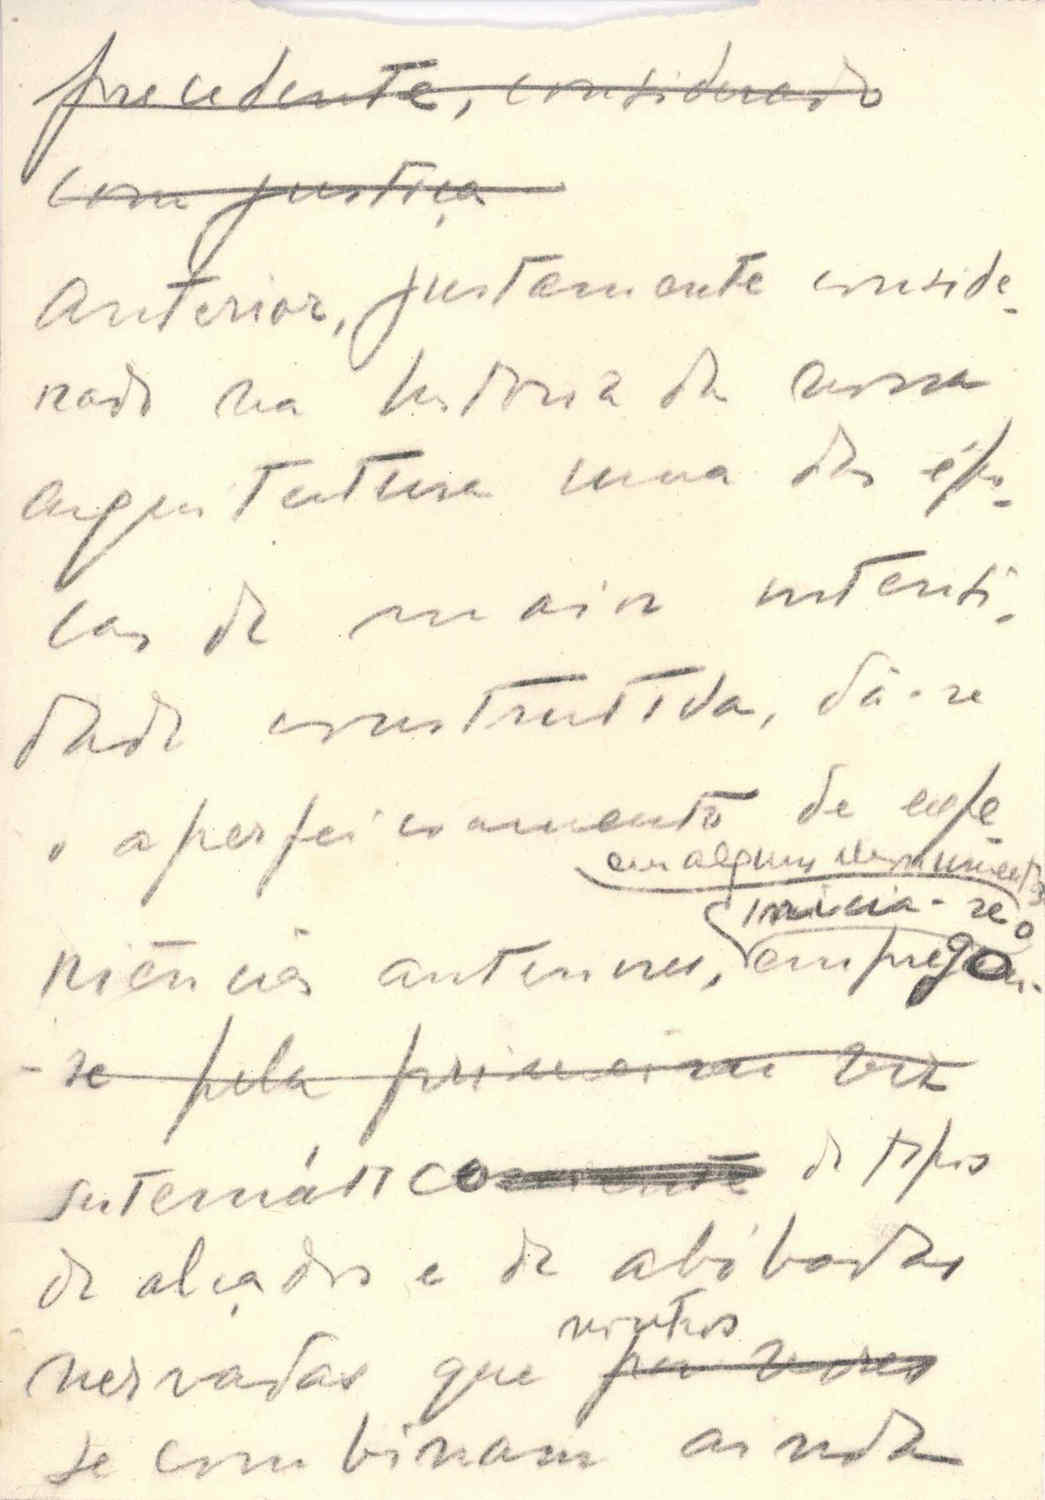 precedente, considerado
com justiça
Anterior, justamente conside-
rado na historia da nossa
arquitectura uma das épo-
cas de maior intensi-
dade construtiva, dá-se
o aperfeicoamento de expe-
em alguns monumentos
inicia-se o
riências anteriores, empregan-
-se pela primeira vez
sistemático de tipos
de alçados e de abóbadas
nervadas que
noutros
por vezes
se combinam ainda